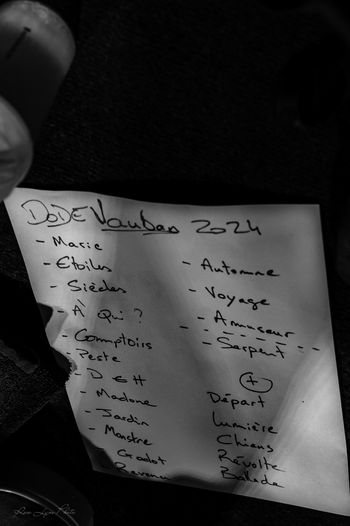 DODE Vauban 2024
- Marie
- Etoiles
- Siècles
- À Qui ?
- Comptoirs
- Peste
- D € H
- Madone
- Jardin
- Monstre
Godot
Revenu
- Automne
- Voyage
- Amuseur
- Serpent
+
Départ
Lumière
Chiens
Révolte
Balade